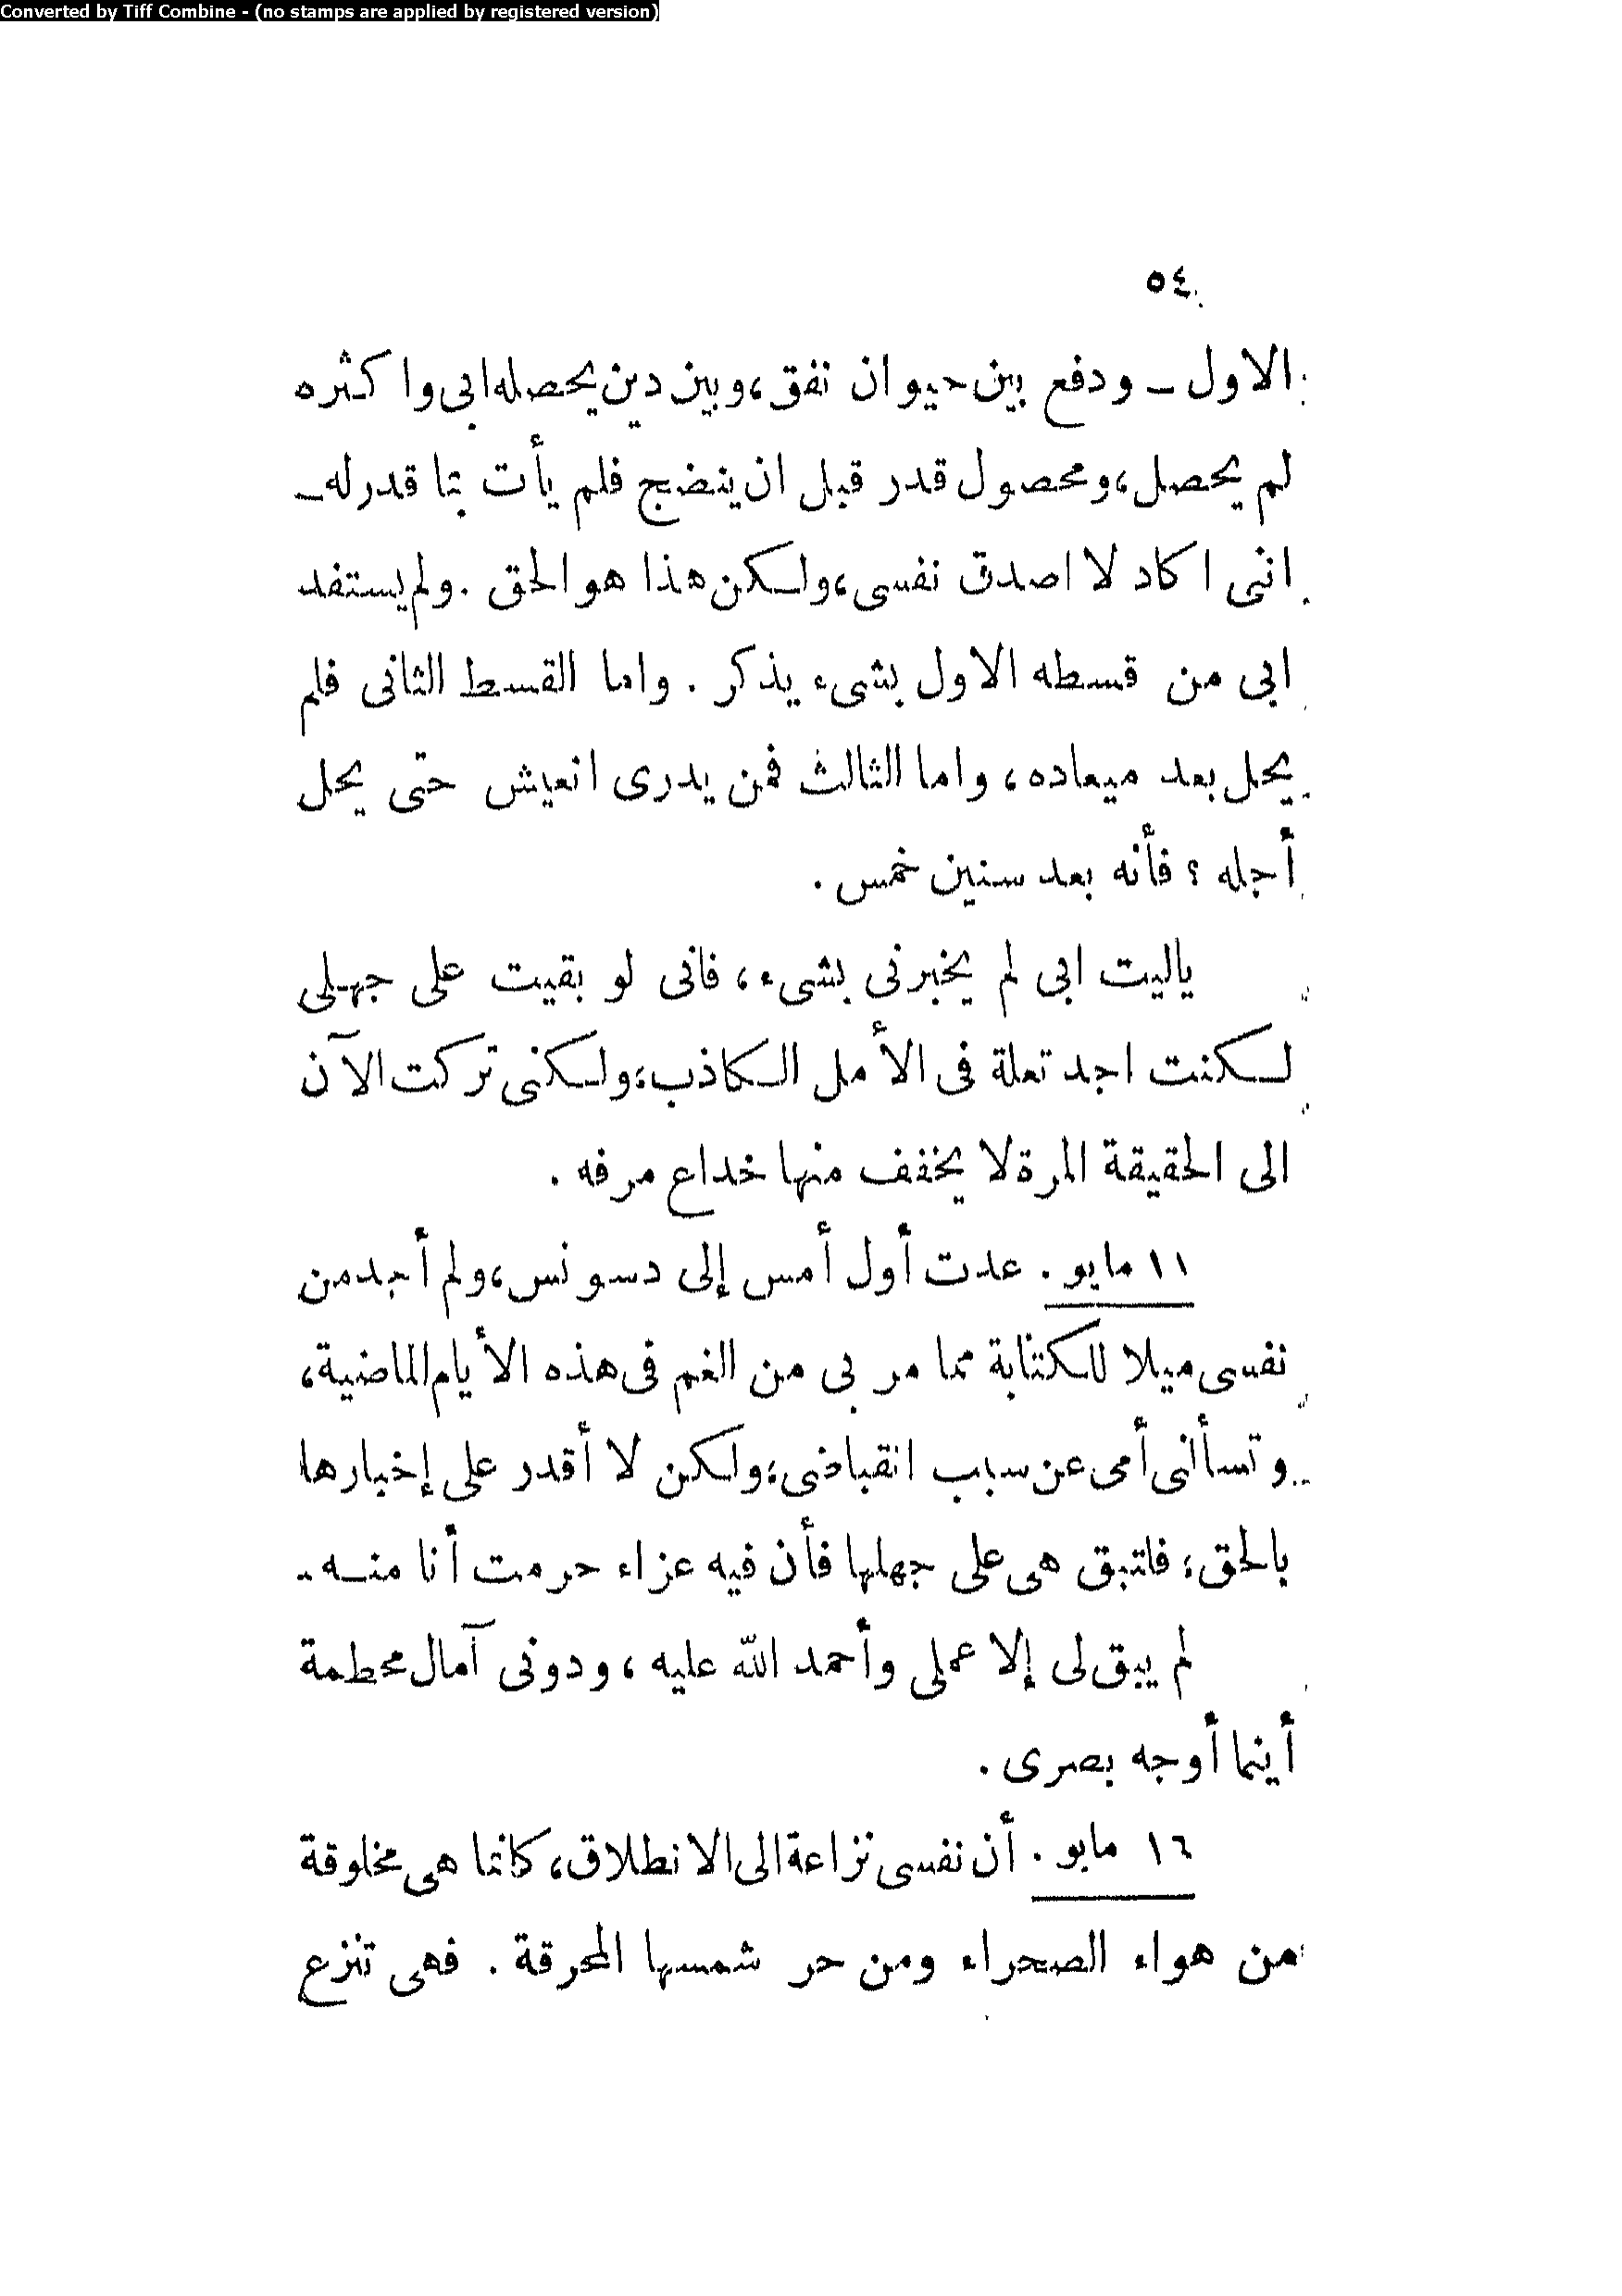 Converted by Tiff Combine - (no stamps are applied by registered version)
٥٤
الاول – ودفع بين حيوان نفق، وبين دين يحصله ابى واكثره
لم يحصل، ومحصول قدر قبل ان ينضج فلم يأت بما قدر له –
اننى اكاد لا اصدق نفسى، ولكن هذا هو الحق . ولم يستفد
ابى من قسطه الاول بشىء يذكر . واما القسط الثانى فلم
يحل بعد ميعاده، واما الثالث فمن يدرى انعيش حتى يحل
أجله ؟ فأنه بعد سنين خمس .
ياليت ابى لم يخبرنى بشىء، فانى لو بقيت على جهلى
لكنت اجد تعلة فى الأمل الكاذب، ولكنى تركت الآن
الى الحقيقة المرة لا يخفف منها خداع مرفه .
١١ مايو . عدت أول أمس إلى دسونس، ولم أجد من
نفسى ميلا للكتابة مما مر بى من الغم فى هذه الأيام الماضية،
وتسألنى أمى عن سبب انقباضى، ولكن لا أقدر على إخبارها
بالحق؛ فلتبق هى على جهلها فأن فيه عزاء حرمت أنا منه .
لم يبق لى إلا عملى وأحمد الله عليه، ودونى آمال محطمة
أينما أوجه بصرى .
١٦ مايو . أن نفسى نزاعة الى الانطلاق، كانما هى مخلوقة
من هواء الصحراء ومن حر شمسها المحرقة . فهى تنزع